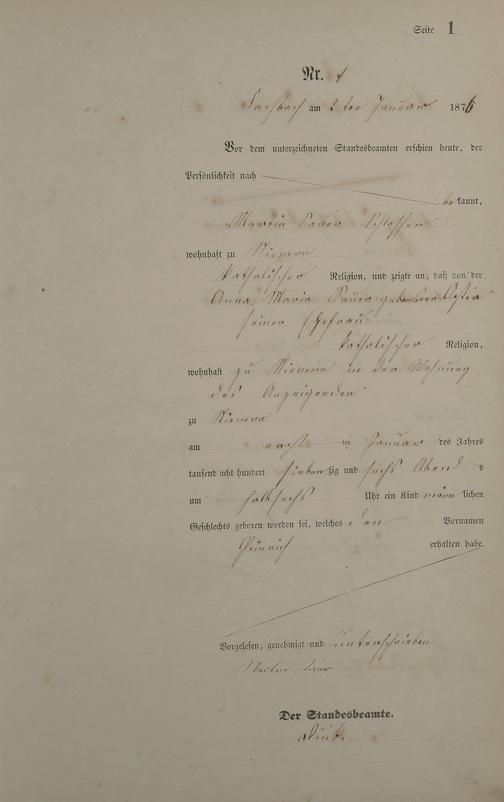 Seite 1
Nr. 1
Fachbach am 2ten Januar 1876
Vor dem unterzeichneten Standesbeamten erschien heute, der
Persönlichkeit nach
bekannt,
Martin Sauer Schlosser
wohnhaft zu Nievern
katholischer Religion, und zeigte an, daß von der
Anna Maria Sauer geborenen
seiner Ehefrau
katholischer Religion,
wohnhaft zu Nievern in der Wohnung
des Anzeigenden
zu Nievern
am Januar des Jahres
tausend acht hundert siebenzig und sechs Abends
um halb sechs Uhr ein Kind männlichen
Geschlechts geboren worden sei, welches den Vornamen
Heinrich erhalten habe.
Vorgelesen, genehmigt und unterschrieben
Martin Sauer
Der Standesbeamte.